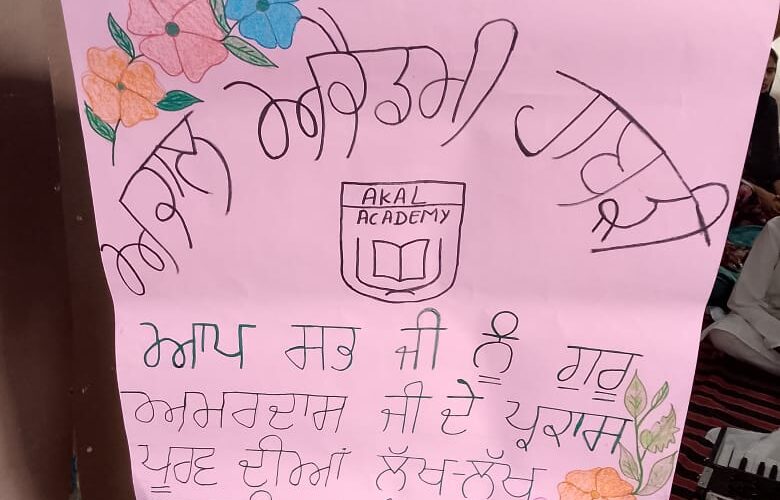 ਅਕਾਲ ਅਕੈਡਮੀ
AKAL
ACADEMY
ਆਪ ਸਭ ਜੀ ਨੂੰ ਗੁਰੂ
ਅਮਰਦਾਸ ਜੀ ਦੇ ਪ੍ਰਕਾਸ
ਪੂਰਵ ਦੀਆਂ ਲੱਖ-ਲੱਖ